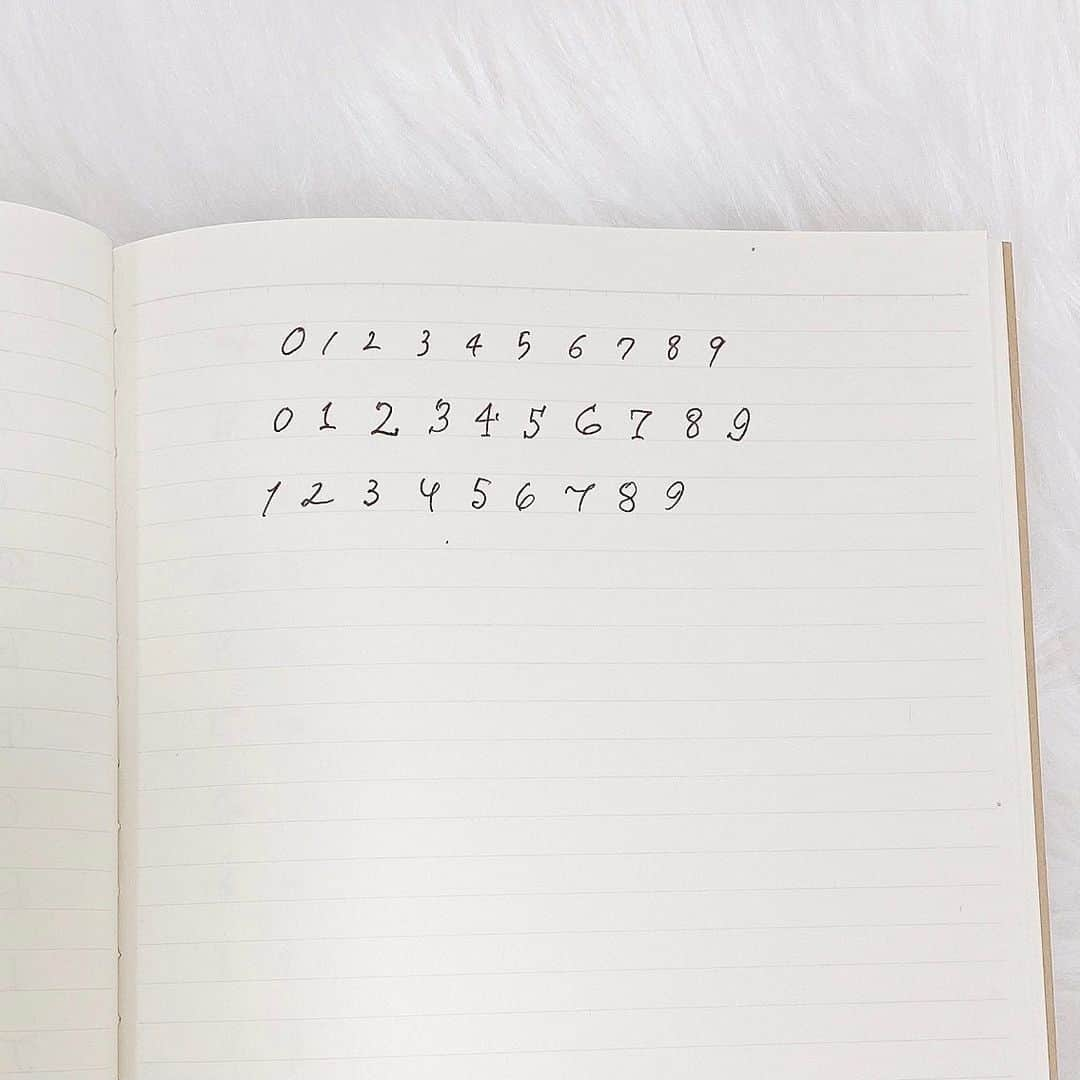 0 1 2 3 4 5 6 7 8 9
0 1 2 3 4 5 6 7 8 9
1 2 3 4 5 6 7 8 9